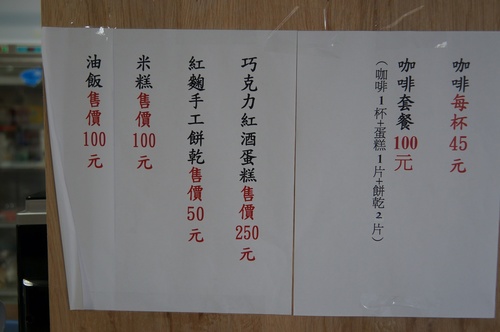 咖啡每杯45元
咖啡套餐100元
(咖啡1杯+蛋糕1片+餅乾2片)
巧克力紅酒蛋糕售價250元
紅麴手工餅乾售價50元
米糕售價100元
油飯售價100元